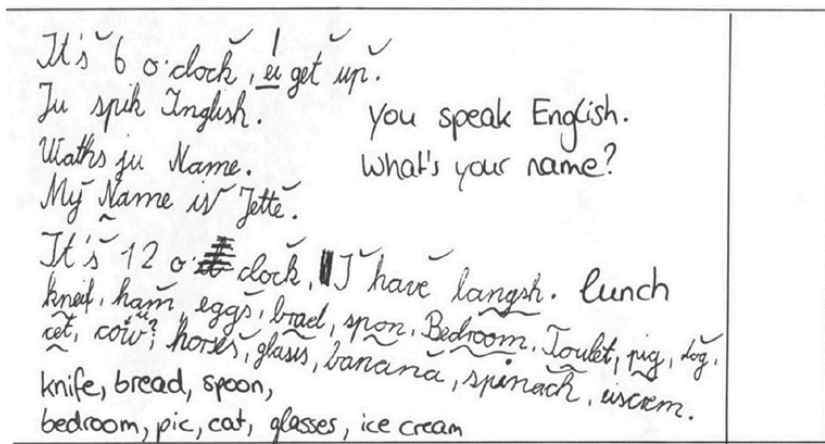 It's 6 o'clock, ei get up.
Ju spik Inglish. you speak English.
Waths ju Name. What's your name?
My Name is Jette.
It's 12 o' clock, I have langsh. lunch
kneif, ham, eggs, brael, spon, Bedroom, Toulet, pig, dog,
cet, cow? horses, glasis, banana, spinach, eiscrem.
knife, bread, spoon,
bedroom, pic, cat, glasses, ice cream